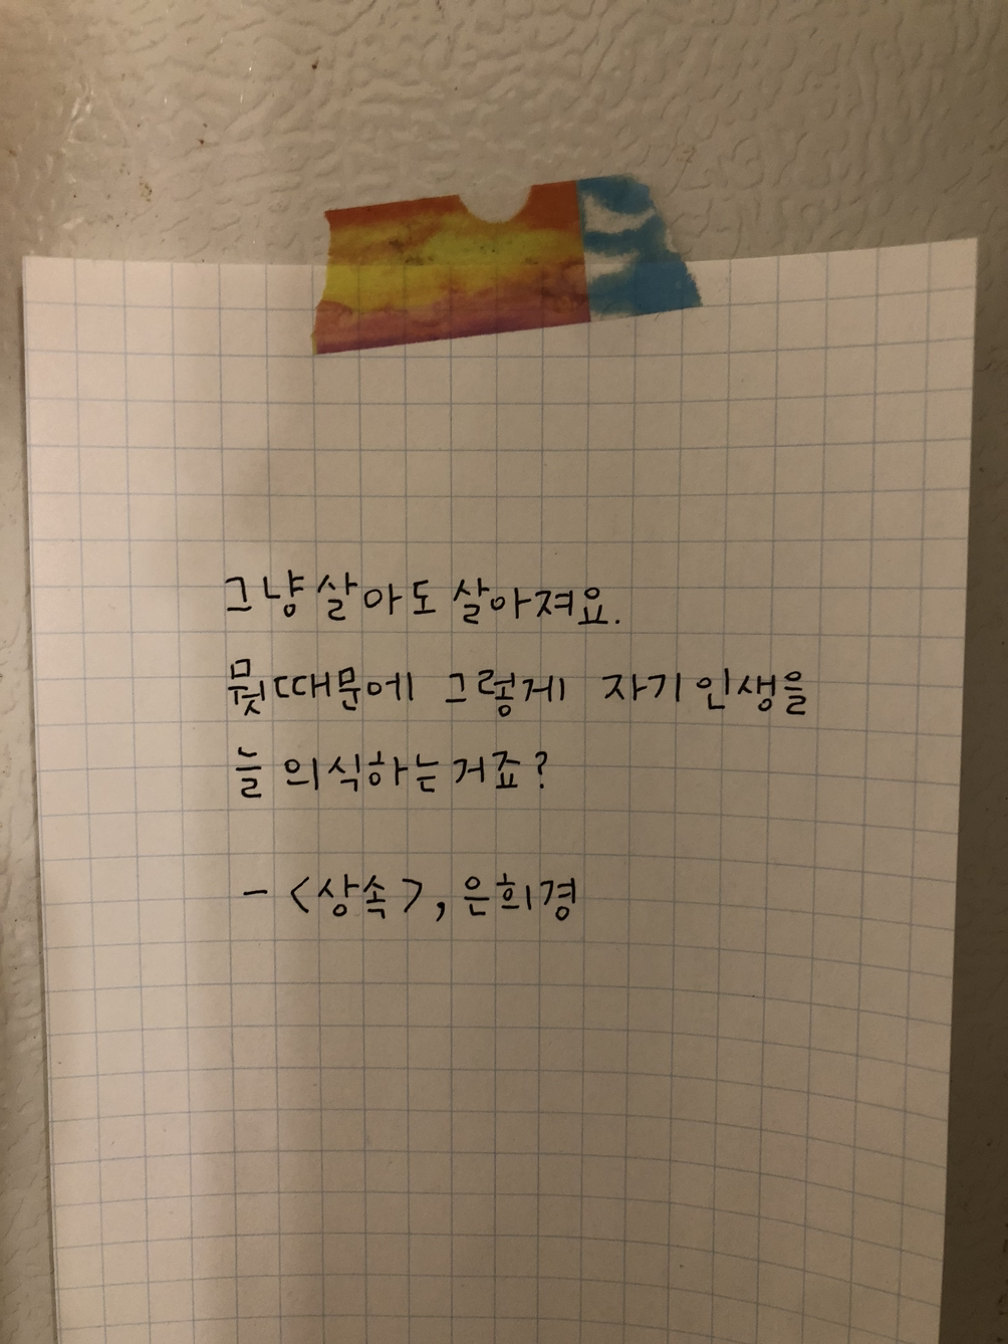 그냥 살아도 살아져요.
뭣때문에 그렇게 자기 인생을
늘 의식하는 거죠?
- <상속>, 은희경